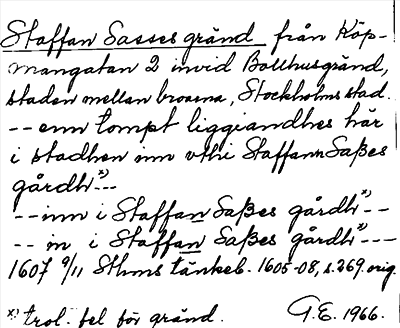 Staffan Sasses gränd från Köp-
mangatan 2 invid Bollhusgränd,
staden mellan broarna, Stockholms stad.
-- enn tompt liggiandhes här
i stadhen inn vthi Staffann Saßes
gårdh x) --
-- inn i Staffan Saßes gårdh x) --
-- in i Staffan Saßes gårdh x) ---
1607 9/11 Sthms tänkeb. 1605-08, s. 269. orig.
x) trol. fel för gränd. G.E. 1966.